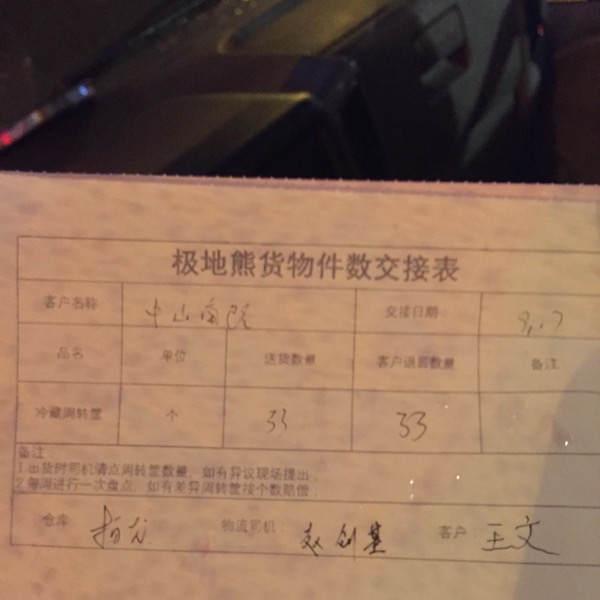 极地熊货物件数交接表
客户名称 中山南院 交接日期: 9.7
品名 单位 送货数量 客户退回数量 备注
冷藏周转筐 个 33 33
备注
1.出货时司机请点周转筐数量，如有异议现场提出。
2.每周进行一次盘点，如有差异周转筐按个数赔偿。
仓库: 物流司机: 赵创基 客户: 王文